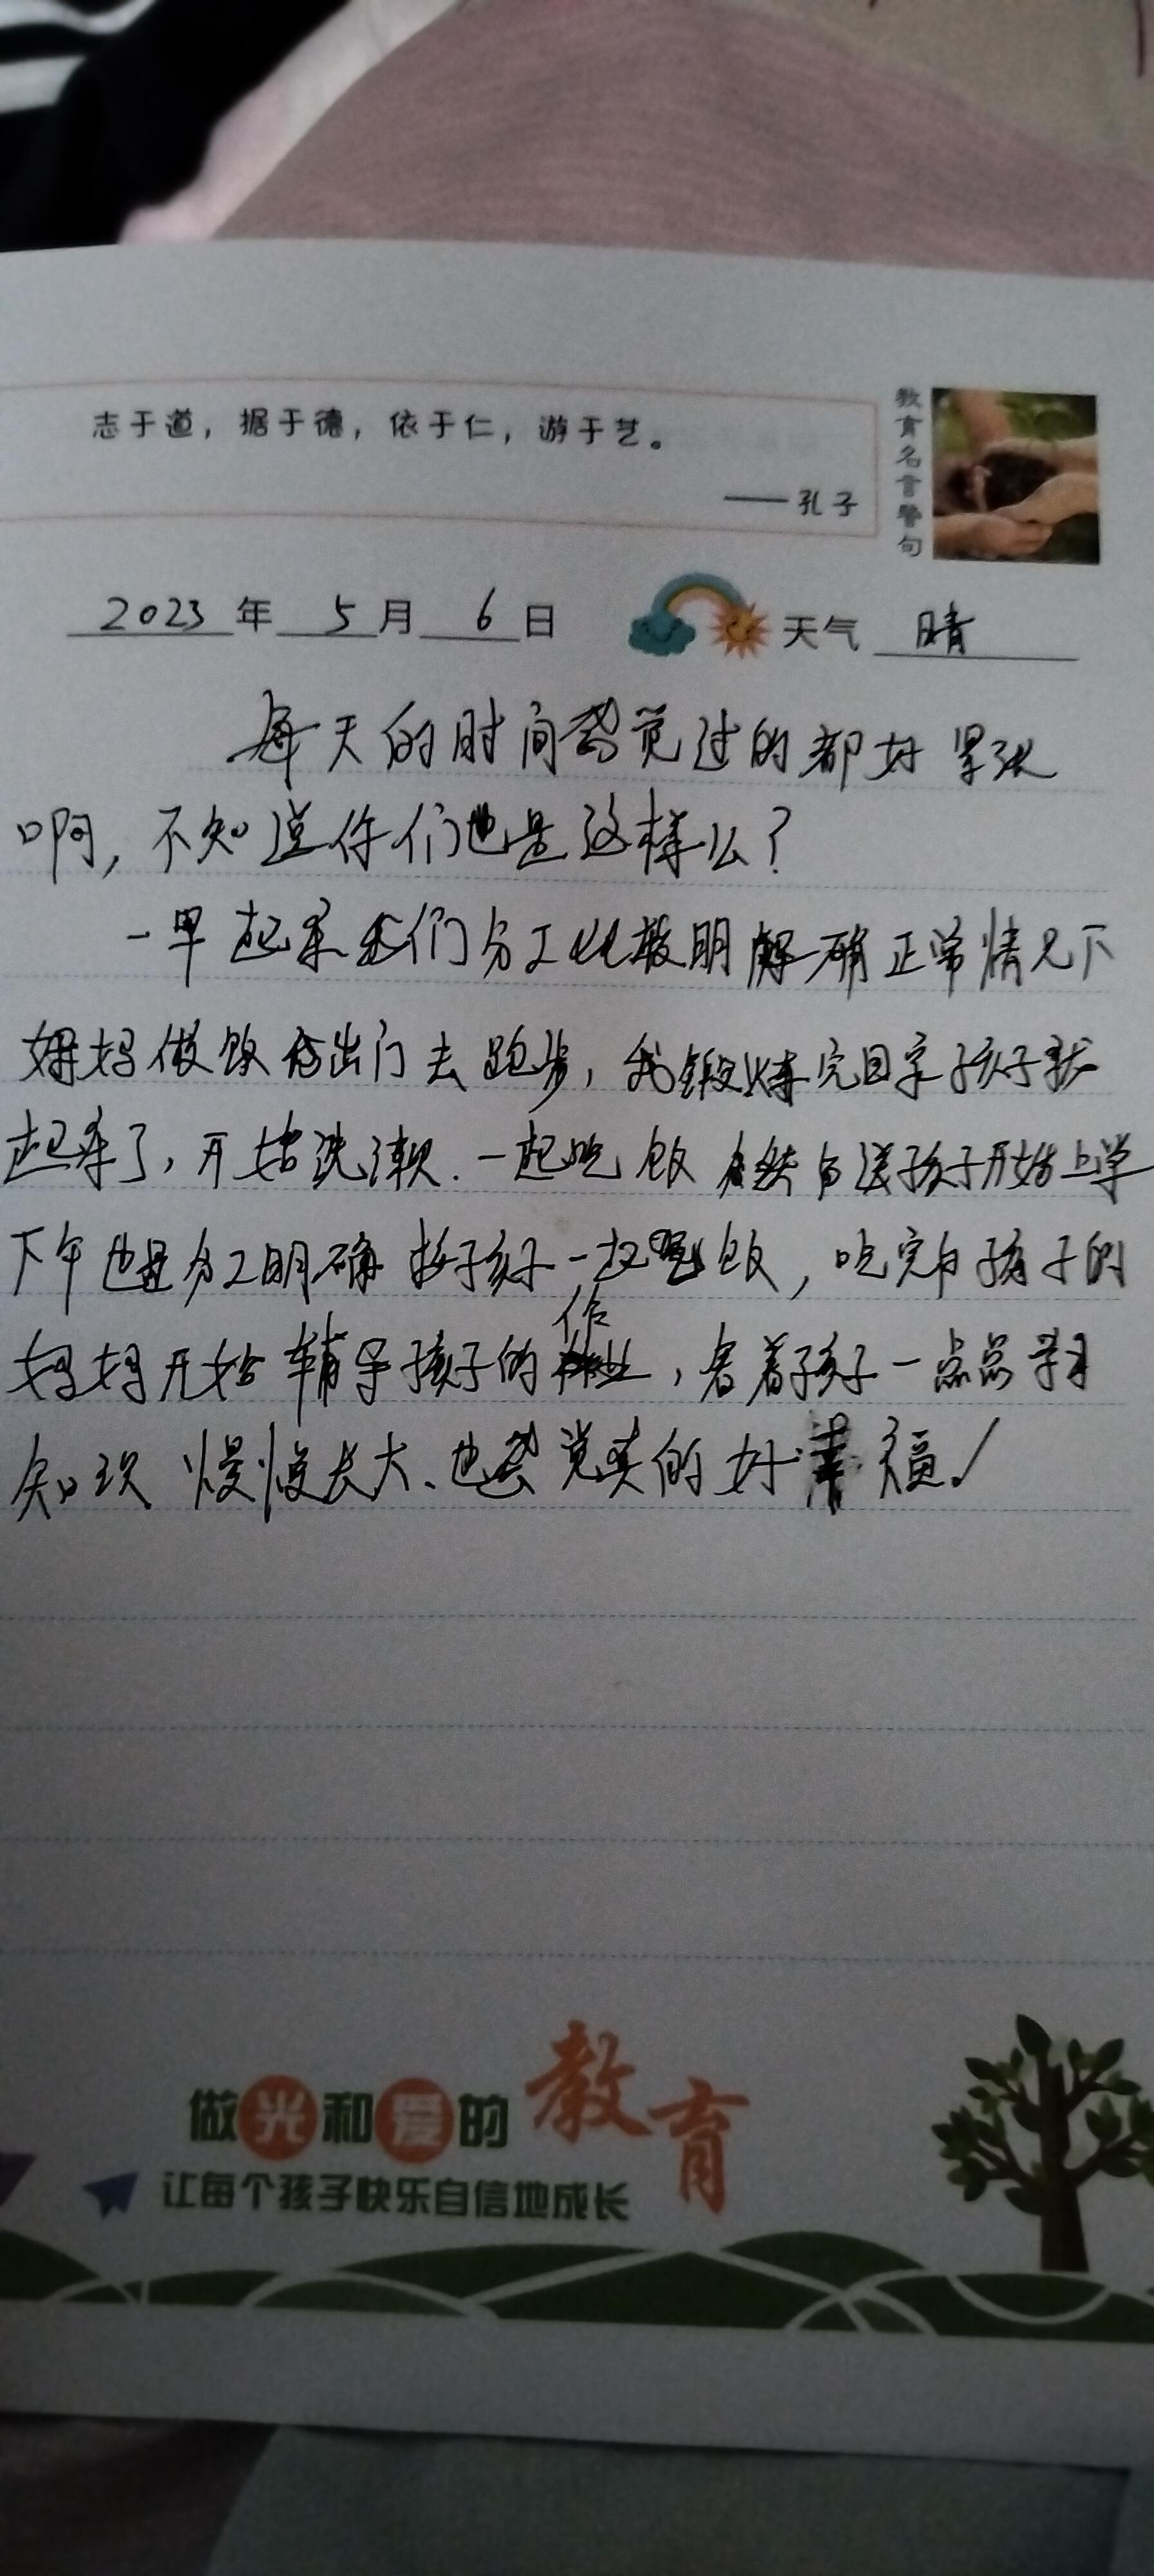 志于道，据于德，依于仁，游于艺。
——孔子
教育名言警句
2023年5月6日 天气 晴
每天的时间感觉过的都好紧张
啊，不知道你们也是这样么？
一早起来我们分工比较明确正常情况下
妈妈做饭 出门去跑步，我锻炼完回家孩子就
起来了，开始洗漱.一起吃饭 然后送孩子开始上学
下午也是分工明确 接孩子一起 饭，吃完后孩子的
妈妈开始辅导孩子的作业，看着孩子一点点学习
知识 慢慢长大、也感觉真的好幸福！
做光和爱的教育
让每个孩子快乐自信地成长